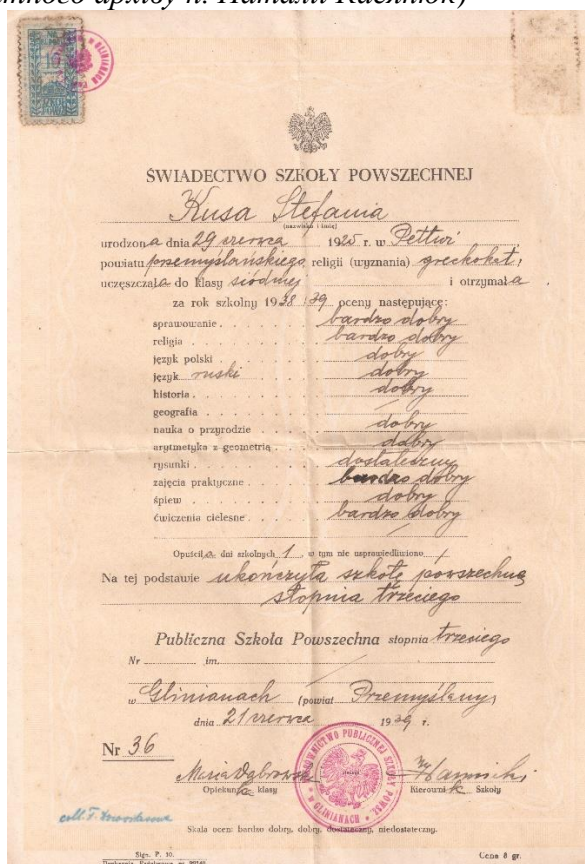 ŚWIADECTWO SZKOŁY POWSZECHNEJ
Kusa Stefania
(nazwisko i imię)
urodzona dnia 29 czerwca 1925 r. w
powiatu przemyślańskiego religii (wyznania) greckokat.
uczęszczała do klasy siódmej i otrzymała
za rok szkolny 1938/39 oceny następujące:
sprawowanie bardzo dobry
religia bardzo dobry
język polski dobry
język ruski dobry
historia dobry
geografia
nauka o przyrodzie dobry
arytmetyka z geometrią dobry
rysunki dostateczny
zajęcia praktyczne bardzo dobry
śpiew dobry
ćwiczenia cielesne bardzo dobry
Opuściła dni szkolnych 1, w tym nie usprawiedliwiono
Na tej podstawie ukończyła szkołę powszechną
stopnia trzeciego
Publiczna Szkoła Powszechna stopnia trzeciego
Nr im.
w Glinianach (powiat Przemyślany)
dnia 21 czerwca 1939 r.
Nr 36
Maria Dąbrowska
Opiekunka klasy Kierownik Szkoły
Skala ocen: bardzo dobry, dobry, dostateczny, niedostateczny.
Sign. P. 10.
Cena 8 gr.